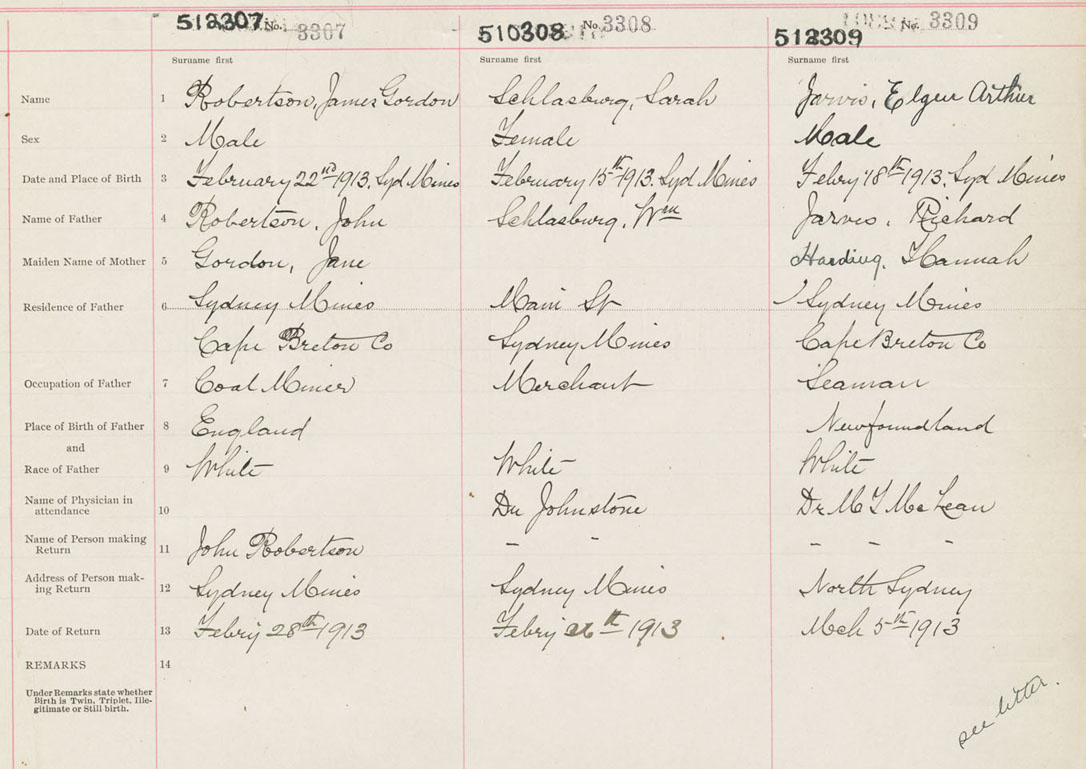 512307 No. 3307 510308 No. 3308 513309 No. 3309
Surname first Surname first Surname first
Name 1 Robertson, James Gordon Schlasburg, Sarah Jarvis, Elgur Arthur
Sex 2 Male Female Male
Date and Place of Birth 3 February 22nd 1913. Syd Mines February 15th 1913. Syd Mines Febry 18th 1913. Syd Mines
Name of Father 4 Robertson, John Schlasburg, Wm Jarvis, Richard
Maiden Name of Mother 5 Gordon, Jane Harding, Hannah
Residence of Father 6 Sydney Mines Main St Sydney Mines
Cape Breton Co Sydney Mines Cape Breton Co
Occupation of Father 7 Coal Miner Merchant Seaman
Place of Birth of Father 8 England Newfoundland
and
Race of Father 9 White White White
Name of Physician in
attendance 10 Dr Johnstone Dr M T McLean
Name of Person making
Return 11 John Robertson - - - - -
Address of Person mak-
ing Return 12 Sydney Mines Sydney Mines North Sydney
Date of Return 13 Febry 28th 1913 Febry 26th 1913 Mch 5th 1913
REMARKS 14
Under Remarks state whether
Birth is Twin, Triplet, Ille-
gitimate or Still birth.
see letter.